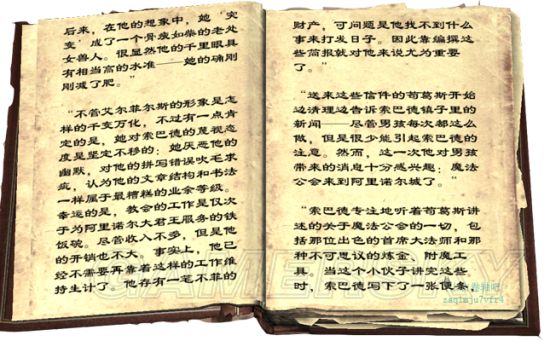 后来，在他的想象中，她‘突
变’成了一个骨瘦如柴的老处
女兽人。很显然他的千里眼具
有相当高的水准——她的确刚
刚减了肥。”
“不管艾尔菲尔斯的形象是怎
样的千变万化，不过有一点肯
定的是，她对索巴德的蔑视态
度是坚定不移的：她厌恶他的
幽默，对他的拼写错误吹毛求
疵，认为他的文章结构和书法
一样属于最糟糕的业余等级。
幸运的是，教会的工作是仅次
于为阿里诺尔大君王服务的铁
饭碗。尽管收入不多，但是他
的开销也不大，事实上，他已
经不需要再靠着这样的工作维
持生计了。他存有一笔不菲的
财产，可问题是他找不到什么
事来打发日子。因此靠编撰这
些简报就对他来说尤为重要
了。”
“送来这些信件的苟葛斯开始
边清理边告诉索巴德镇子里的
新闻——尽管男孩每次都这么
做，但是很少能引起索巴德的
注意。然而，这一次他对男孩
带来的消息十分感兴趣：魔法
公会来到阿里诺尔城了。”
“索巴德专注地听着苟葛斯讲
述的关于魔法公会的一切，包
括那位出色的首席大法师和那
种不可思议的炼金、附魔工
具。当这个小伙子讲完这些
时，索巴德写下了一张便条，
GAMERSKY
zaqimju7vfr4